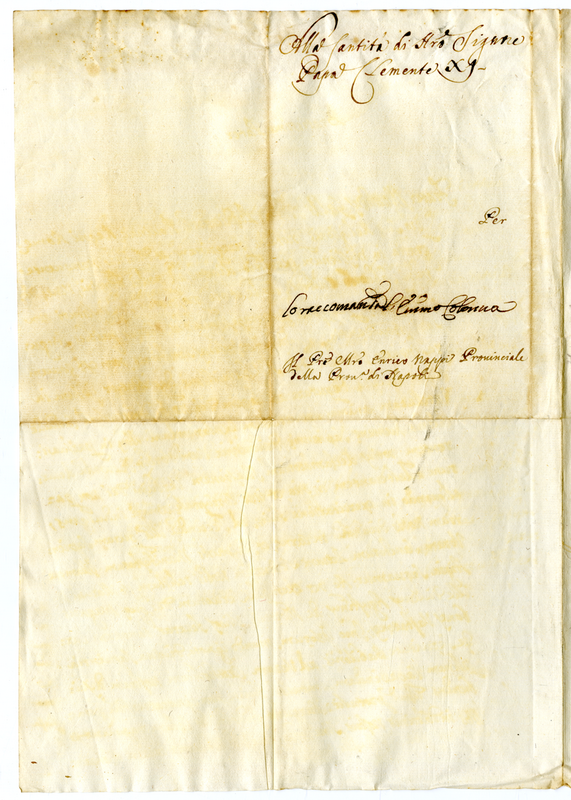 Alla Santità di Nro Signre
Papa Clemente XI
Per
lo raccomanda l'Emmo Colonna
Il Pre Mro Enrico Nappi Provinciale
della Prova di Napoli